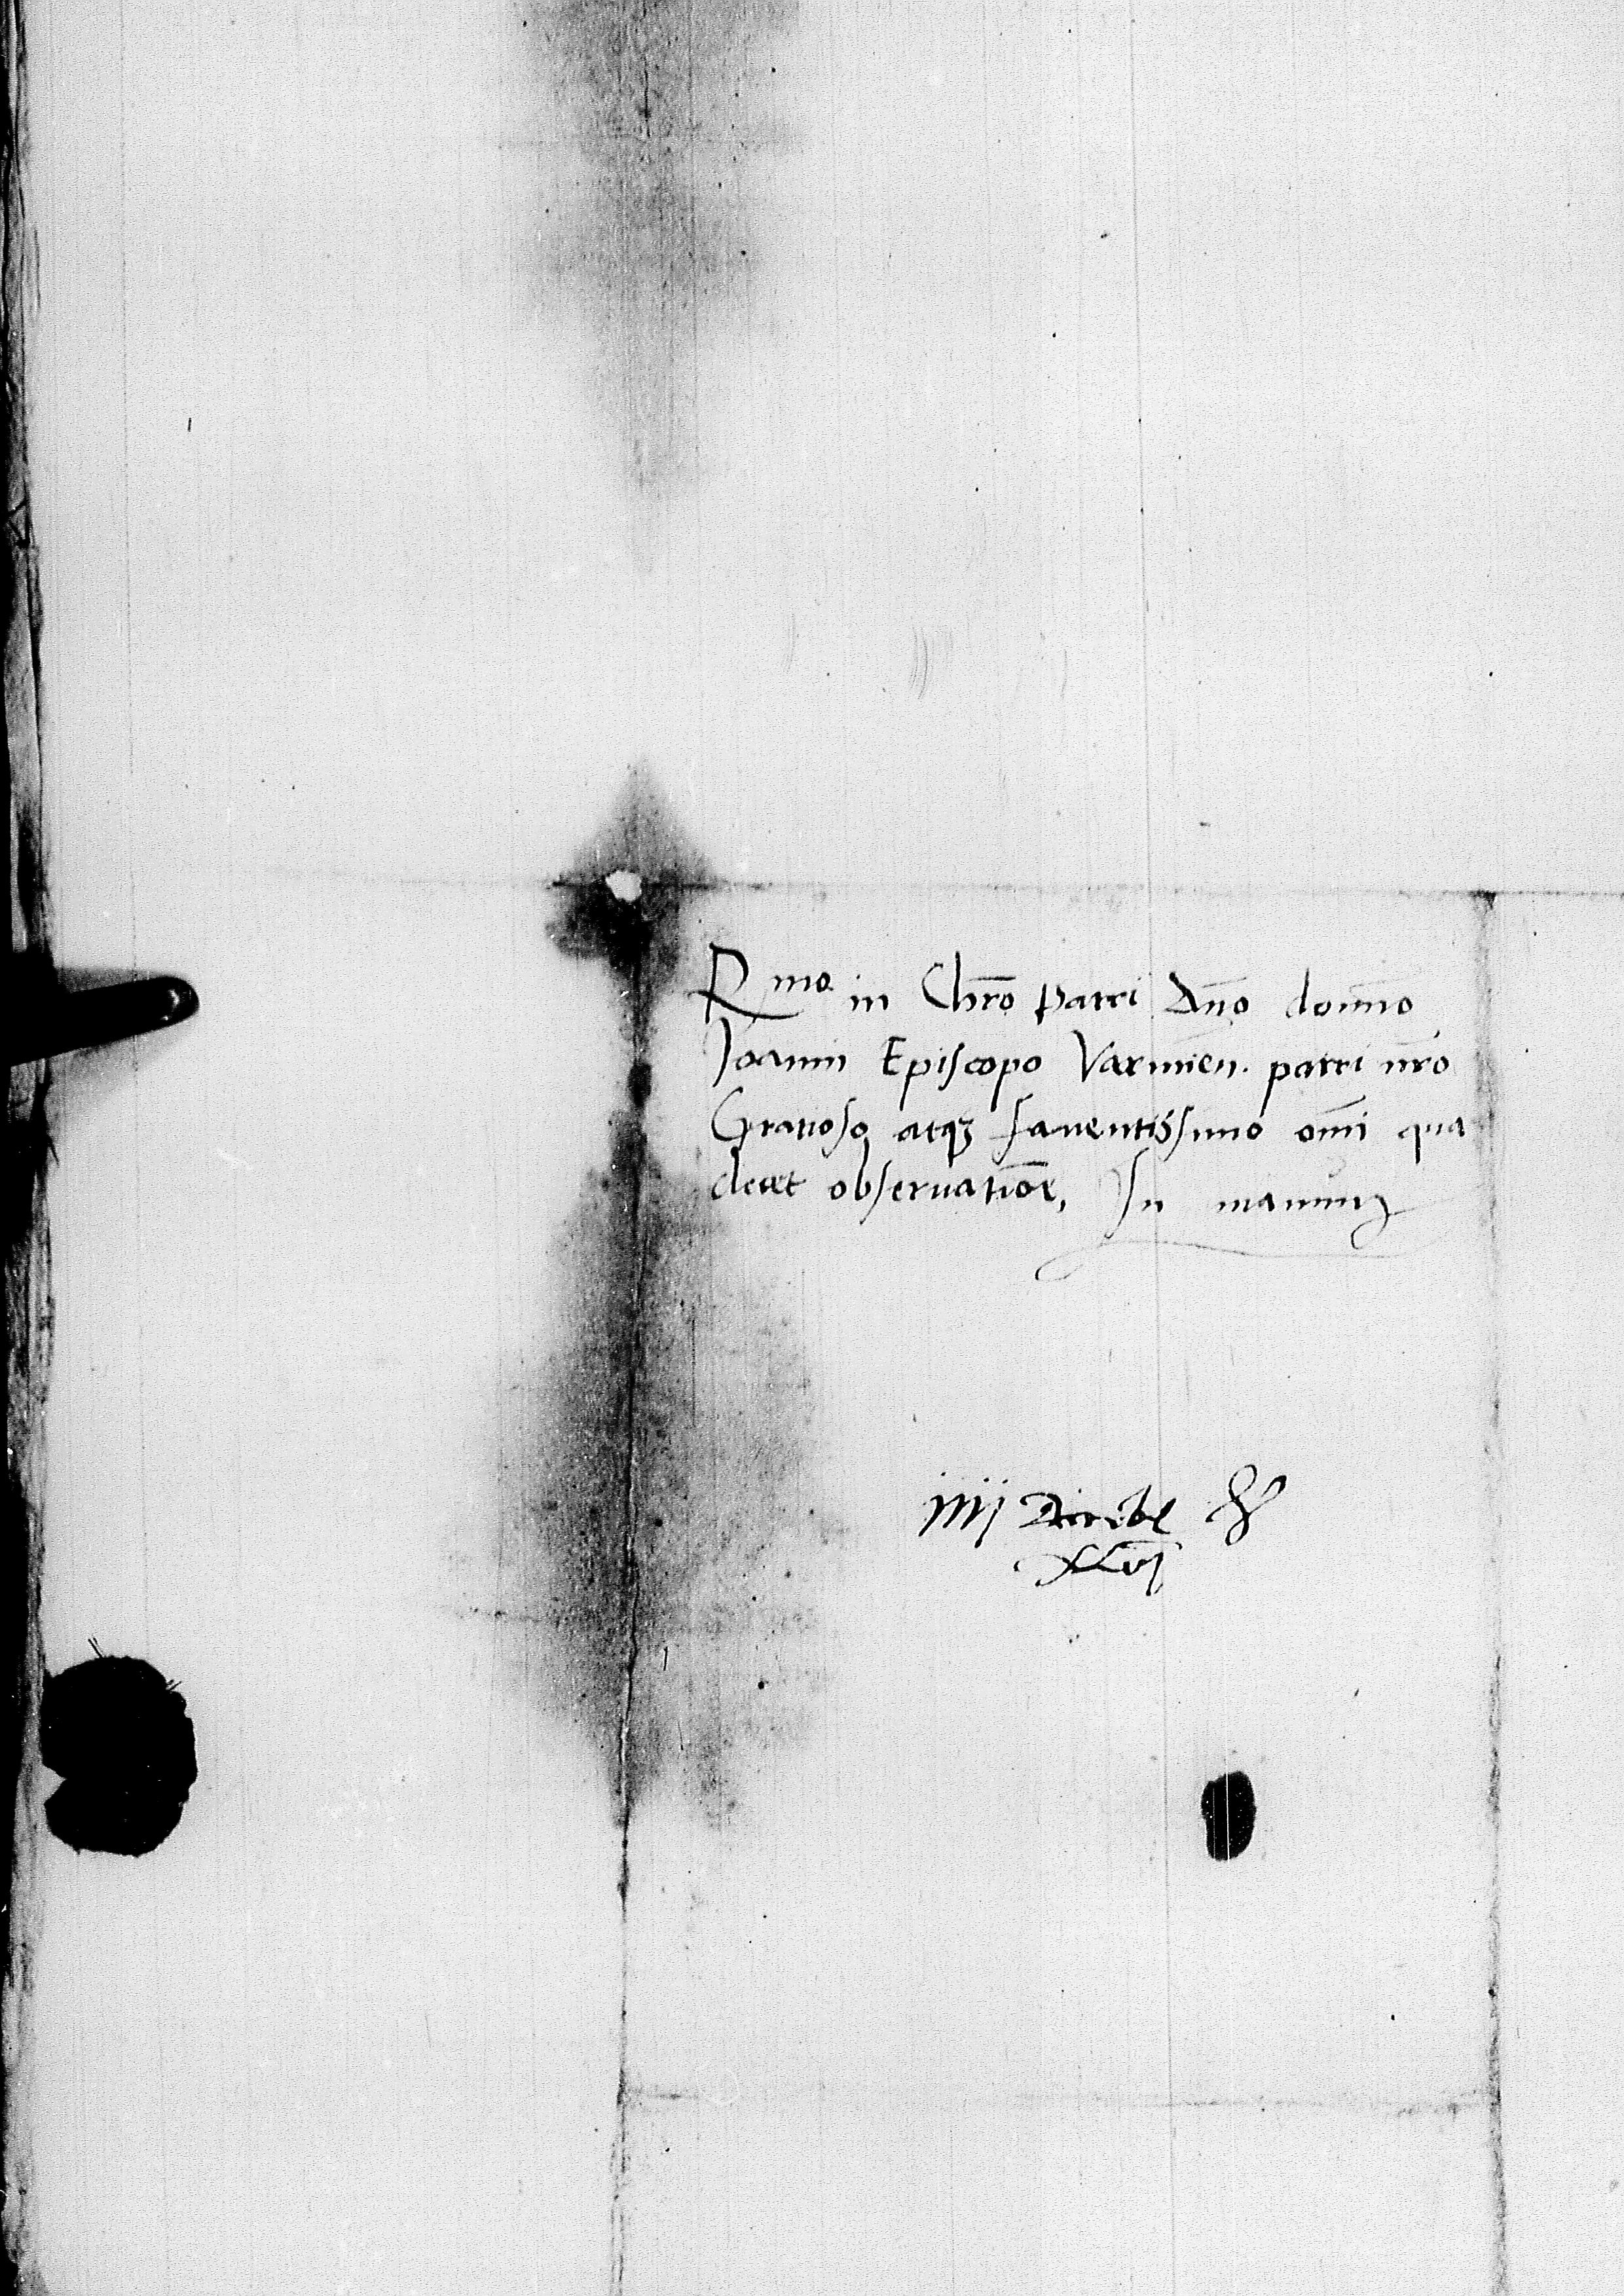 R<sup>mo</sup> in Chr̄o patri Dn̄o domino
Joanni Episcopo Varmien. patri nr̄o
Gratioso atqꝫ faventissimo om̄i qua
decet observatiōe, In manuꝫ
iiij Decēbr
XLvj